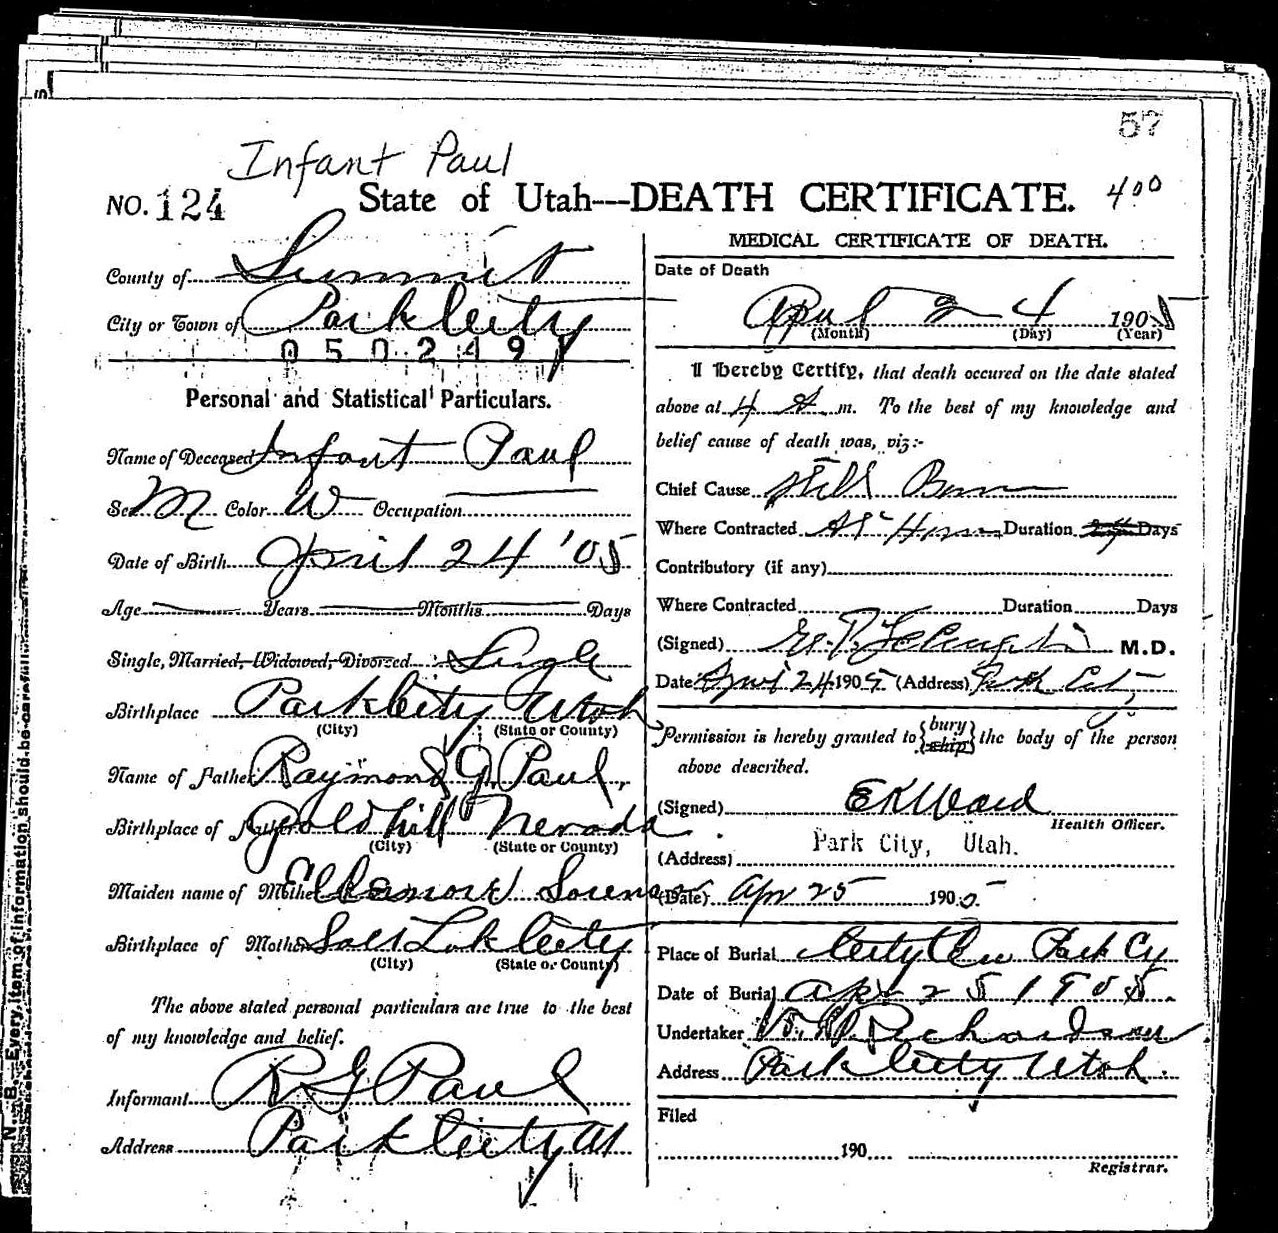 57
Infant Paul
NO. 124 State of Utah---DEATH CERTIFICATE. 400
County of Summit
City or Town of Park City
050249
Personal and Statistical Particulars.
Name of Deceased Infant Paul
Sex M Color W Occupation
Date of Birth April 24 '05
Age Years Months Days
Single, Married, Widowed, Divorced Single
Birthplace Park City Utah
(City) (State or County)
Name of Father Raymond G. Paul
Birthplace of Father Gold hill Nevada
(City) (State or County)
Maiden name of Mother
Birthplace of Mother Salt Lake City
(City) (State or County)
The above stated personal particulars are true to the best
of my knowledge and belief.
Informant R G Paul
Address Park City Ut
MEDICAL CERTIFICATE OF DEATH.
Date of Death
April 24 1905
(Month) (Day) (Year)
I Hereby Certify, that death occured on the date stated
above at 4 A m. To the best of my knowledge and
belief cause of death was, viz:-
Chief Cause Still Born
Where Contracted At Home Duration Days
Contributory (if any)
Where Contracted Duration Days
(Signed) M.D.
Date April 24 1905 (Address) Park City
Permission is hereby granted to {bury ship} the body of the person
above described.
(Signed) E K Ward
Health Officer.
(Address) Park City, Utah.
(Date) Apr 25 1905
Place of Burial City Cem Park Cy
Date of Burial Apr 25 1905
Undertaker Richardson
Address Park City Utah.
Filed
190
Registrar.
N. B. Every item of information should be carefully